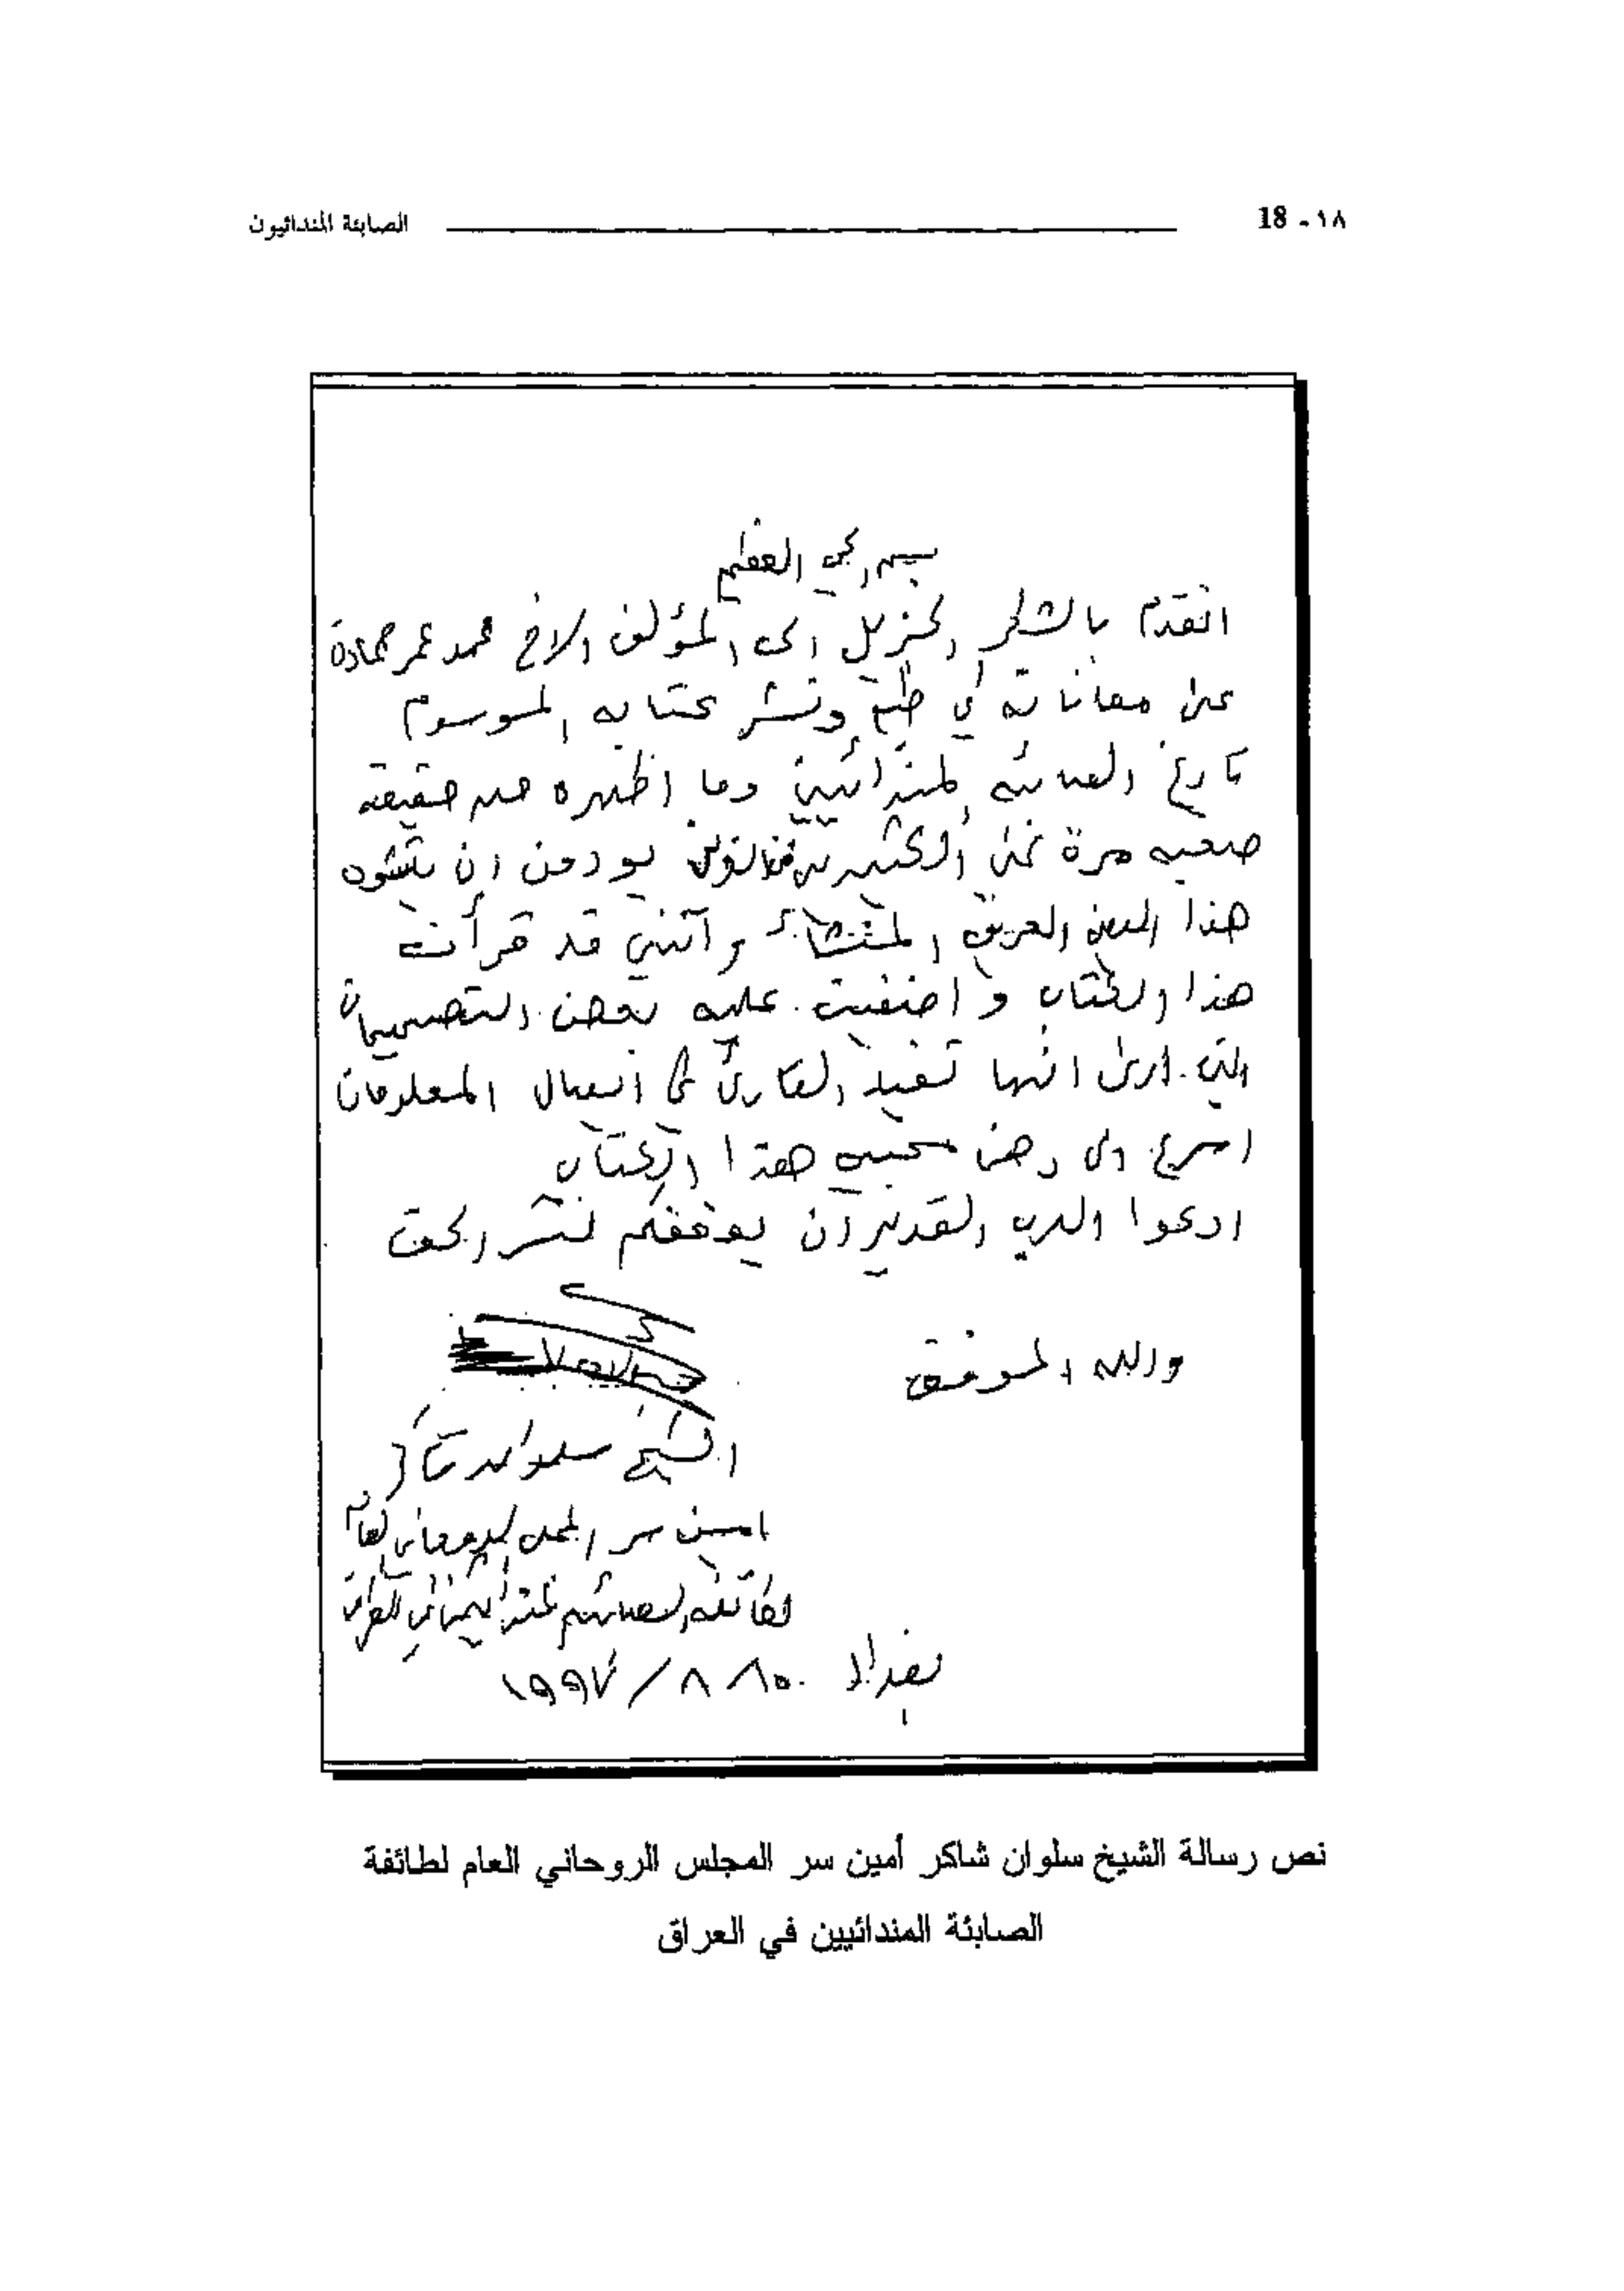 ١٨ - 18 الصابئة المندائيون
بسم الحي العظيم
اتقدم بالشكر الجزيل الى المؤلف الاخ محمد عمر حمادة
على معاناته في طبع ونشر كتابه الموسوم
تاريخ الصابئة المندائيين وما اظهره من حقيقة
مرة على الكثير يودون ان
هذا الدين العريق وانني قد قرأت
هذا الكتاب واضفيت عليه بعض التصحيحات
التي ارى انها تفيد القارئ في ايصال المعلومات
الى ذهن هذا الكتاب
ادعوا الرب القدير ان يوفقكم لنشر الحق
والله الموفق
الشيخ سلوان شاكر
امين سر المجلس الروحاني العام
لطائفة الصابئة المندائيين في العراق
بغداد ٨ / ١٩٩٧
نص رسالة الشيخ سلوان شاكر أمين سر المجلس الروحاني العام لطائفة
الصابئة المندائيين في العراق